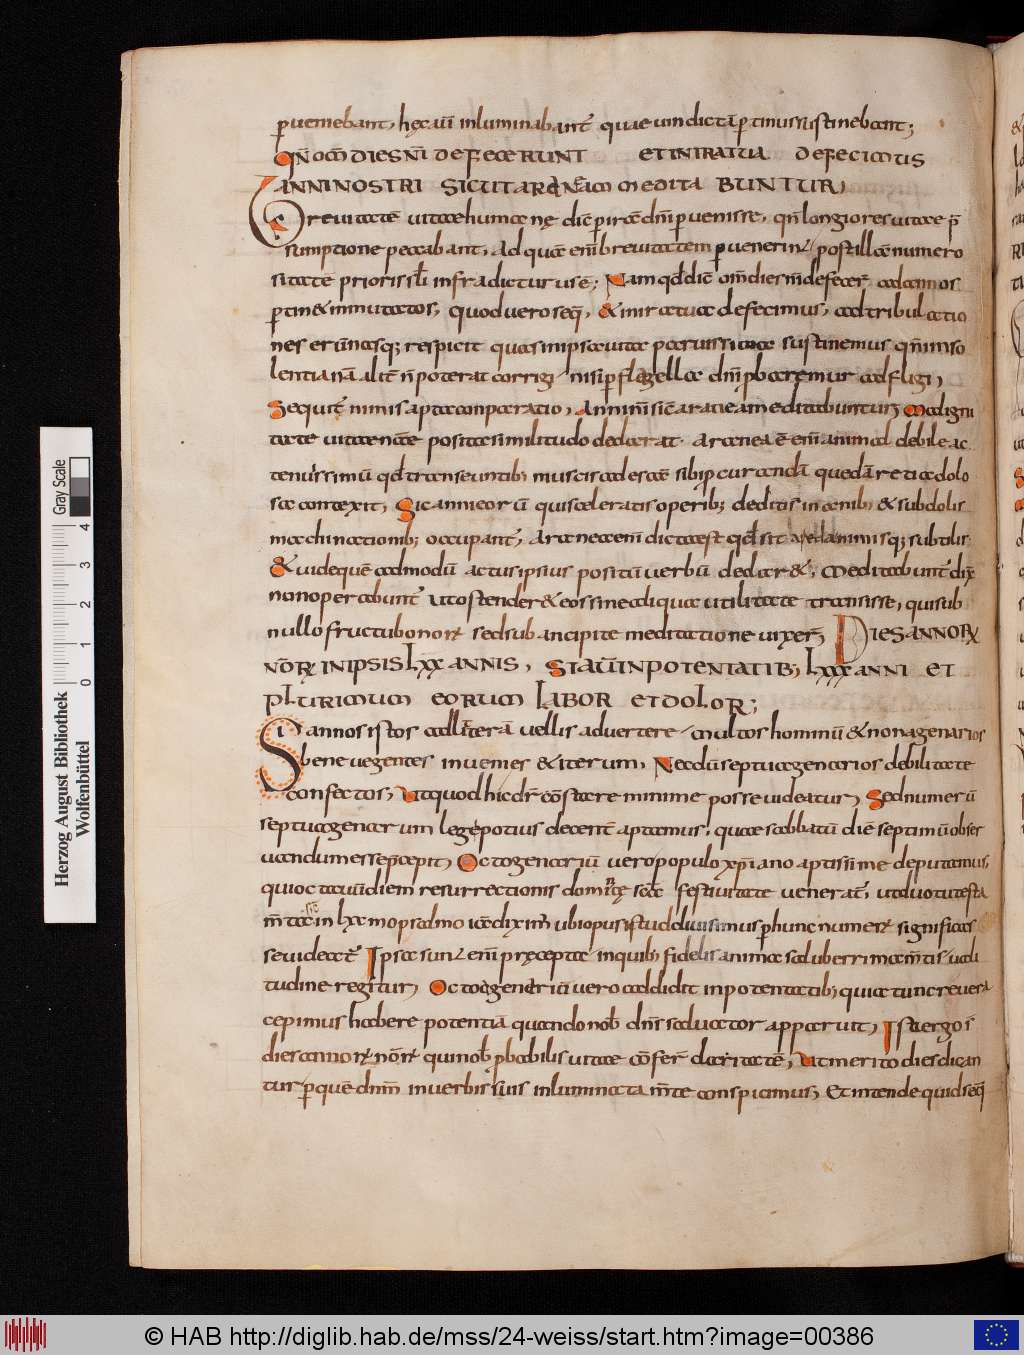 ꝑveniebant, hęc aūt inluminabant̄ quae vindictā ꝓtinus sustinebant;
Qm̄ om̄s dies nr̄i defecerunt et in ira tua defecimus
anni nostri sicut aranea meditabuntur;
Brevitatē vitae humanę diē ꝑ irā dn̄i ꝑvenisse, qn̄ longiores vitae p̄
sumptione peccabant, Ad quā em̄ brevitatem ꝑvenerint / post illā numero
sitatē prioris sc̄li infra dicturus ē; Nam qd̄ dic̄ om̄s dies nr̄i defecer̄ ad annos
ꝑtinet inminutatos, quod vero seq̄, & in ira tua defecimus, ad tribulatio
nes erūnasq; respicit quas in ipsa vita parvissima sustinemus qm̄ inso
lentia nr̄a alit̄ n̄ poterat corrigi / nisi ꝑ flagella dn̄i ꝓbaremur adfligi,
Sequit̄ nimis apta conparatio, Anni nr̄i sic̄ aranea meditabuntur, Ad igni
tate vitae nr̄ae posita similitudo declarat. Aranea ē em̄ animal debile ac
tenuissimū qd̄ transeuntib; muscis ad escā sibi ꝓcurandā quedā retia dolo
sa contexit, Sic anni eorū qui sceleratis operib; deditis inanib; & subdolis
machinationib; occupant̄, Aranea em̄ dicta est qd̄ sit nimisq; subtilis
& videquē admodū actus ipsius positū verbū declaret, Meditabunt̄ dix̄
non operabunt̄ ut ostenderet eos sine aliqua utilitate transisse, qui sub
nullo fructu bonoꝝ sed sub ancipite meditatione vixer̄, Dies annoꝝ
nr̄oꝝ in ipsis Lxx annis, Si aūt in potentatib; Lxxx anni et
plurimum eorum labor et dolor;
Si annos istos ad litterā vellis advertere / multos hominū & nonagenarios
bene vegentes invenies & iterum, Necdū septuagenarios debilitate
confectos, Ut quod hic dr̄ cōstare minime posse videatur, Sed numerū
septuagenarium lege potius decent̄ aptamus, quae sabbatū diē septimū obser
vandum esse p̄cepit, Octogenariū vero populo xp̄iano aptissime deputamus,
qui octavū diem resurrectionis dominicę sc̄ā festivitate venerat̄, ut advotu testa
m̄ta sic̄ in lxmo psalmo iā diximus, ubi opus istud divisimus ꝑ hunc numeꝝ significas
se videat̄. Ipsa sunt em̄ pręcepta in quib; fidelis anima saluberrima m̄tis vali
tudine regitur, Octogenariū vero addidit in potentatib; quia tunc revera
cepimus habere potentiā quando nob̄ dn̄s salvator apparuit, Ista ergo s̄
dies annoꝝ nr̄oꝝ qui nob̄ ꝓbabilis vitae cōfer̄ claritatē, Ut merito dies dican
tur ꝑ quē dn̄m in verbis suis inluminata m̄te conspicimus, Et intende quid seq̄
Herzog August Bibliothek
Wolfenbüttel
Gray Scale
0 1 2 3 4
© HAB http://diglib.hab.de/mss/24-weiss/start.htm?image=00386